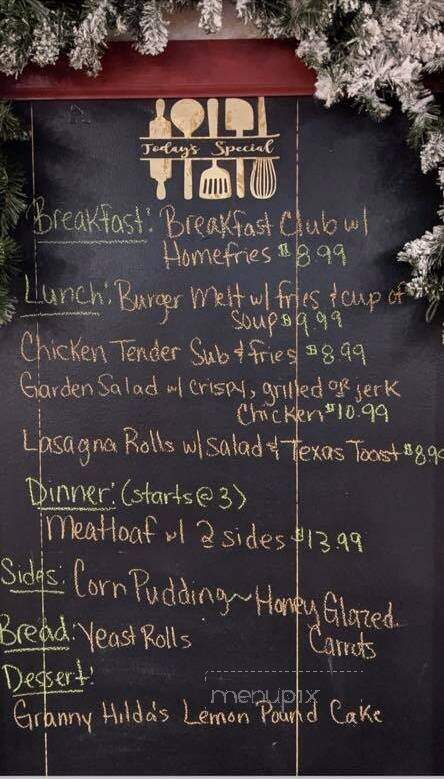 Today's Special
Breakfast: Breakfast Club w/
Homefries $8.99
Lunch: Burger Melt w/ fries & cup of
Soup $9.99
Chicken Tender Sub & fries $8.99
Garden Salad w/ crispy, grilled or jerk
Chicken $10.99
Lasagna Rolls w/ Salad & Texas Toast $8.99
Dinner: (starts @ 3)
Meatloaf w/ 2 sides $13.99
Sides: Corn Pudding ~ Honey Glazed
Carrots
Bread: Yeast Rolls
Dessert:
menupix
Granny Hilda's Lemon Pound Cake